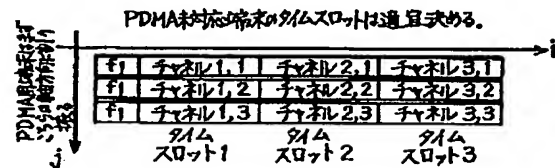 PDMA未対応端末のタイムスロットは適宜決める。
i
PDMA用端末はまず
こちらの軸方向に割り
振る
j
f1 チャネル1,1 チャネル2,1 チャネル3,1
f1 チャネル1,2 チャネル2,2 チャネル3,2
f1 チャネル1,3 チャネル2,3 チャネル3,3
タイム タイム タイム
スロット1 スロット2 スロット3